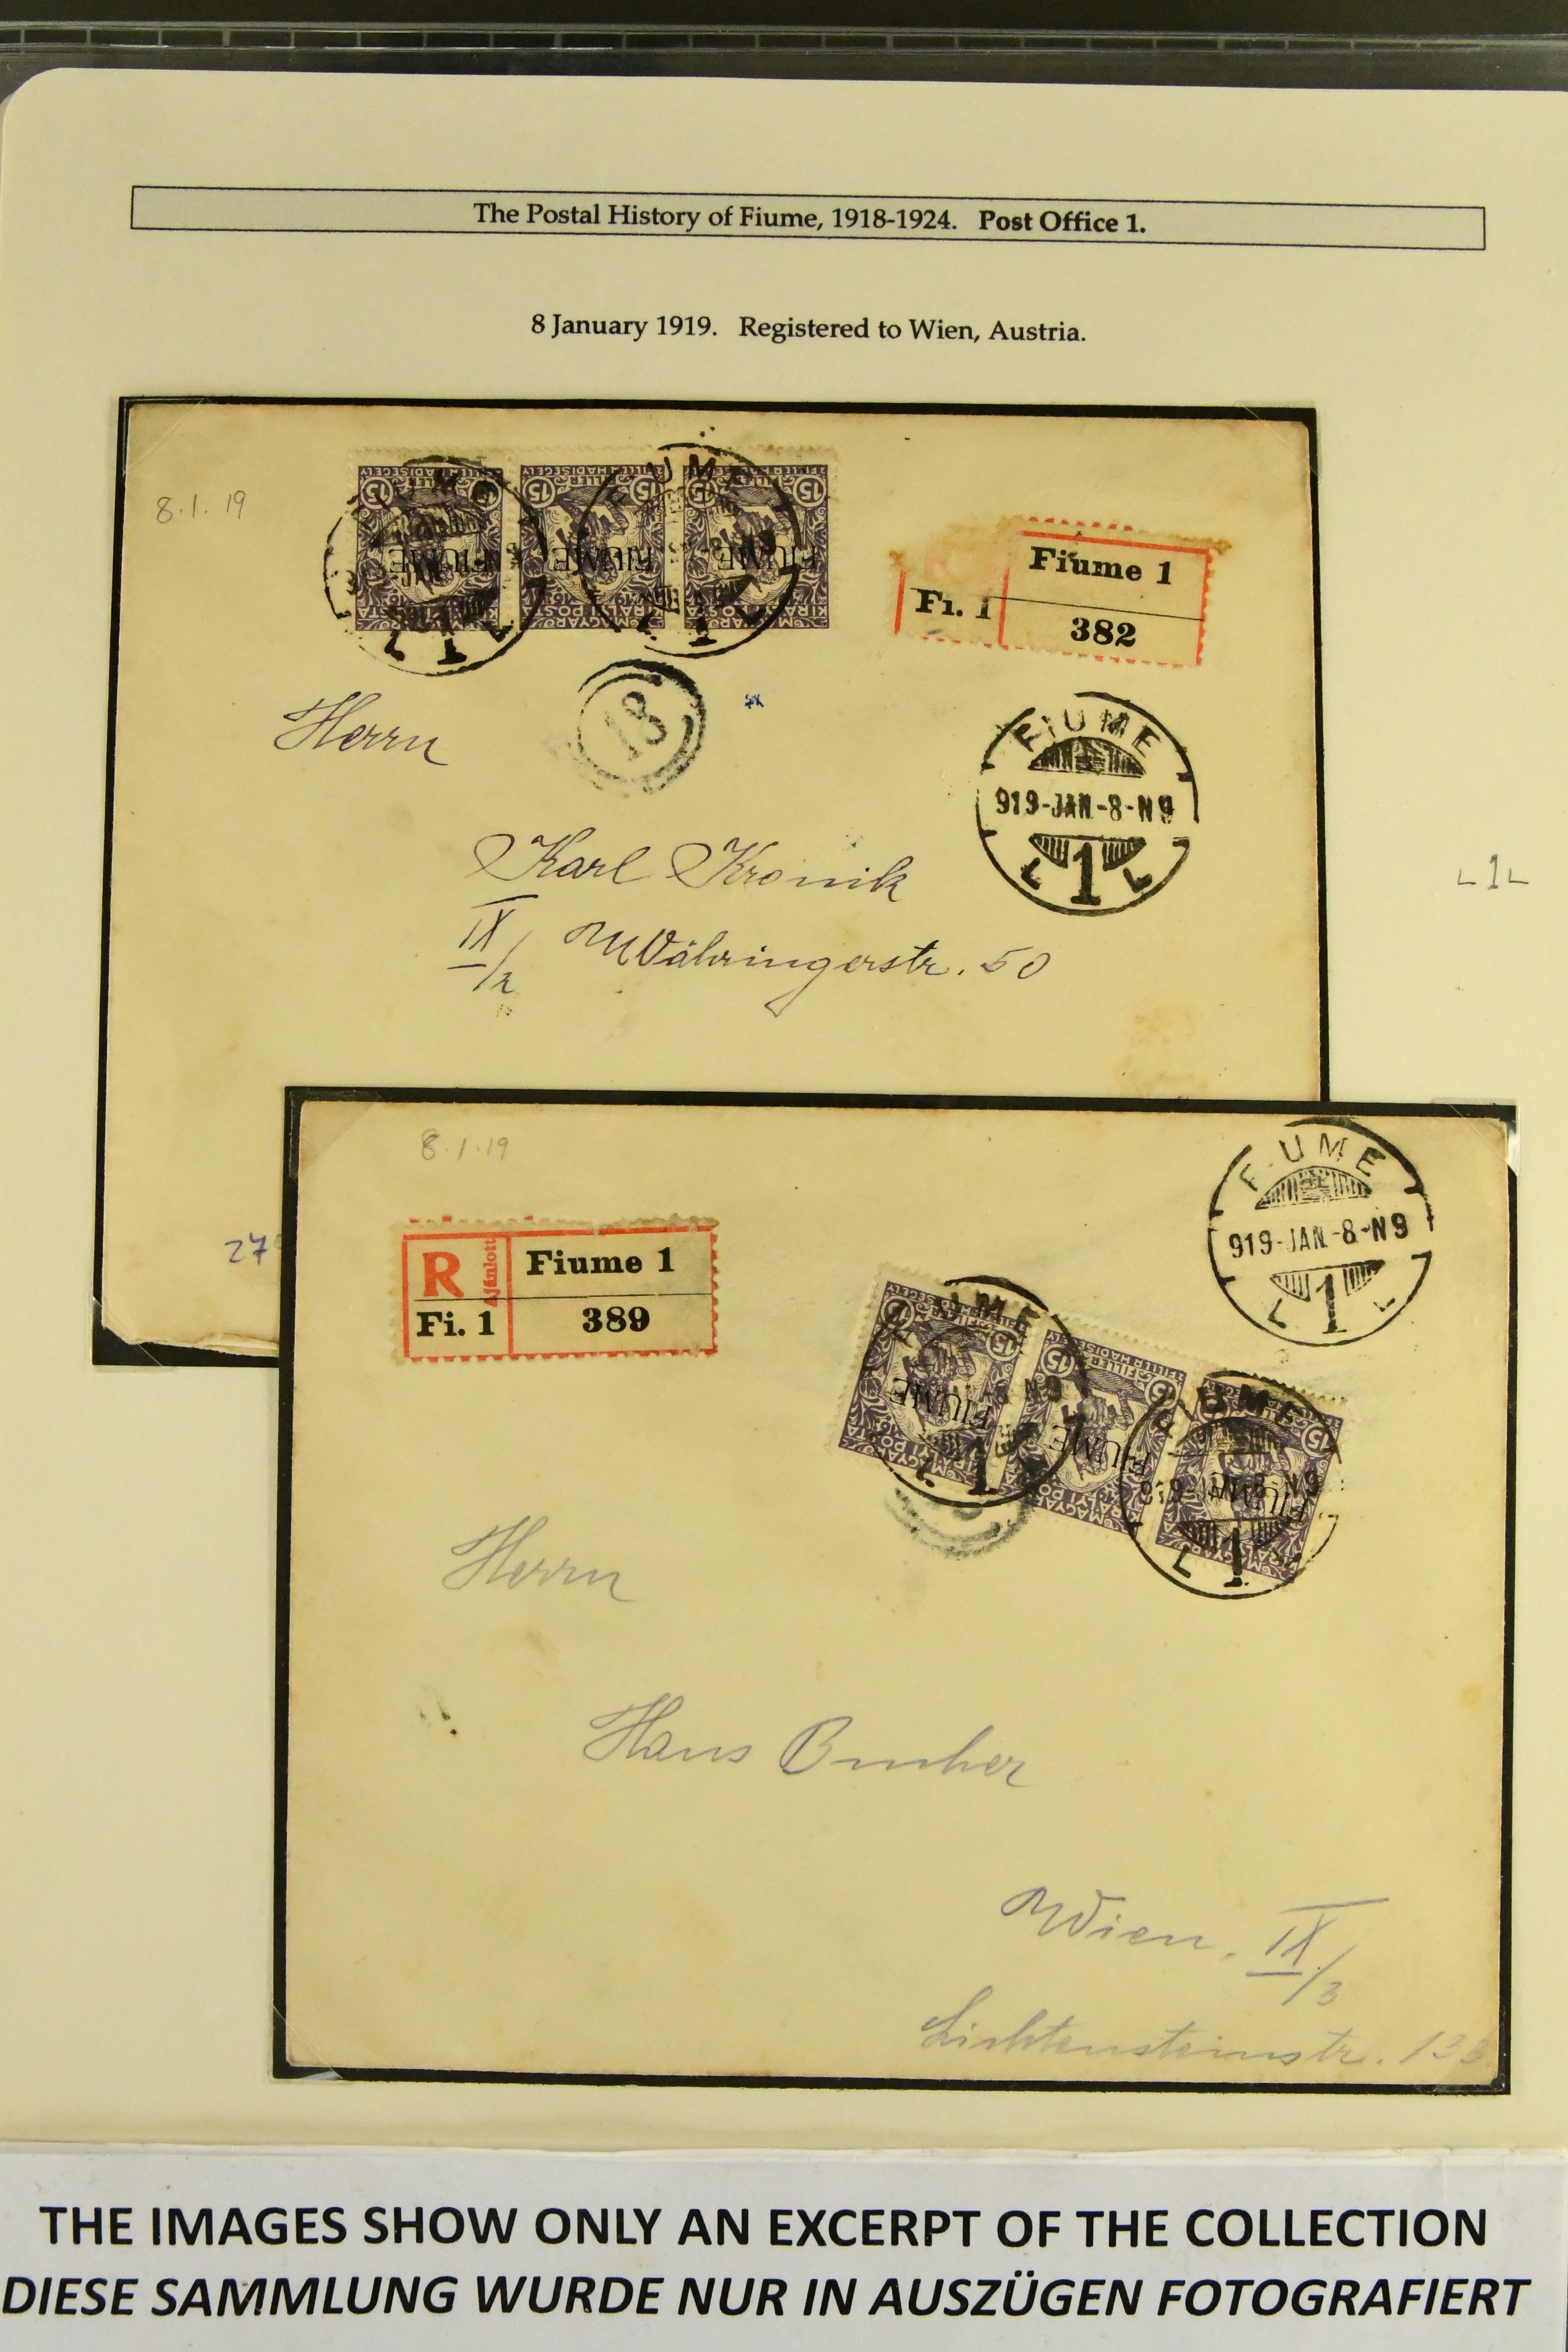 The Postal History of Fiume, 1918-1924. Post Office 1.
8 January 1919. Registered to Wien, Austria.
8.1.19
FIUME
FIUME
FIUME
Fiume 1
Fi. 1
382
18
Herrn
FIUME
919-JAN-8-N9
L 1 L
Karl Kronik
IX/2 Währingerstr. 50
L1L
8.1.19
FIUME
919-JAN-8-N9
1
R Ajánlott
Fiume 1
Fi. 1
389
FIUME
FIUME
FIUME
Herrn
Hans
Wien, IX/3
Lichtensteinstr.
THE IMAGES SHOW ONLY AN EXCERPT OF THE COLLECTION
DIESE SAMMLUNG WURDE NUR IN AUSZÜGEN FOTOGRAFIERT